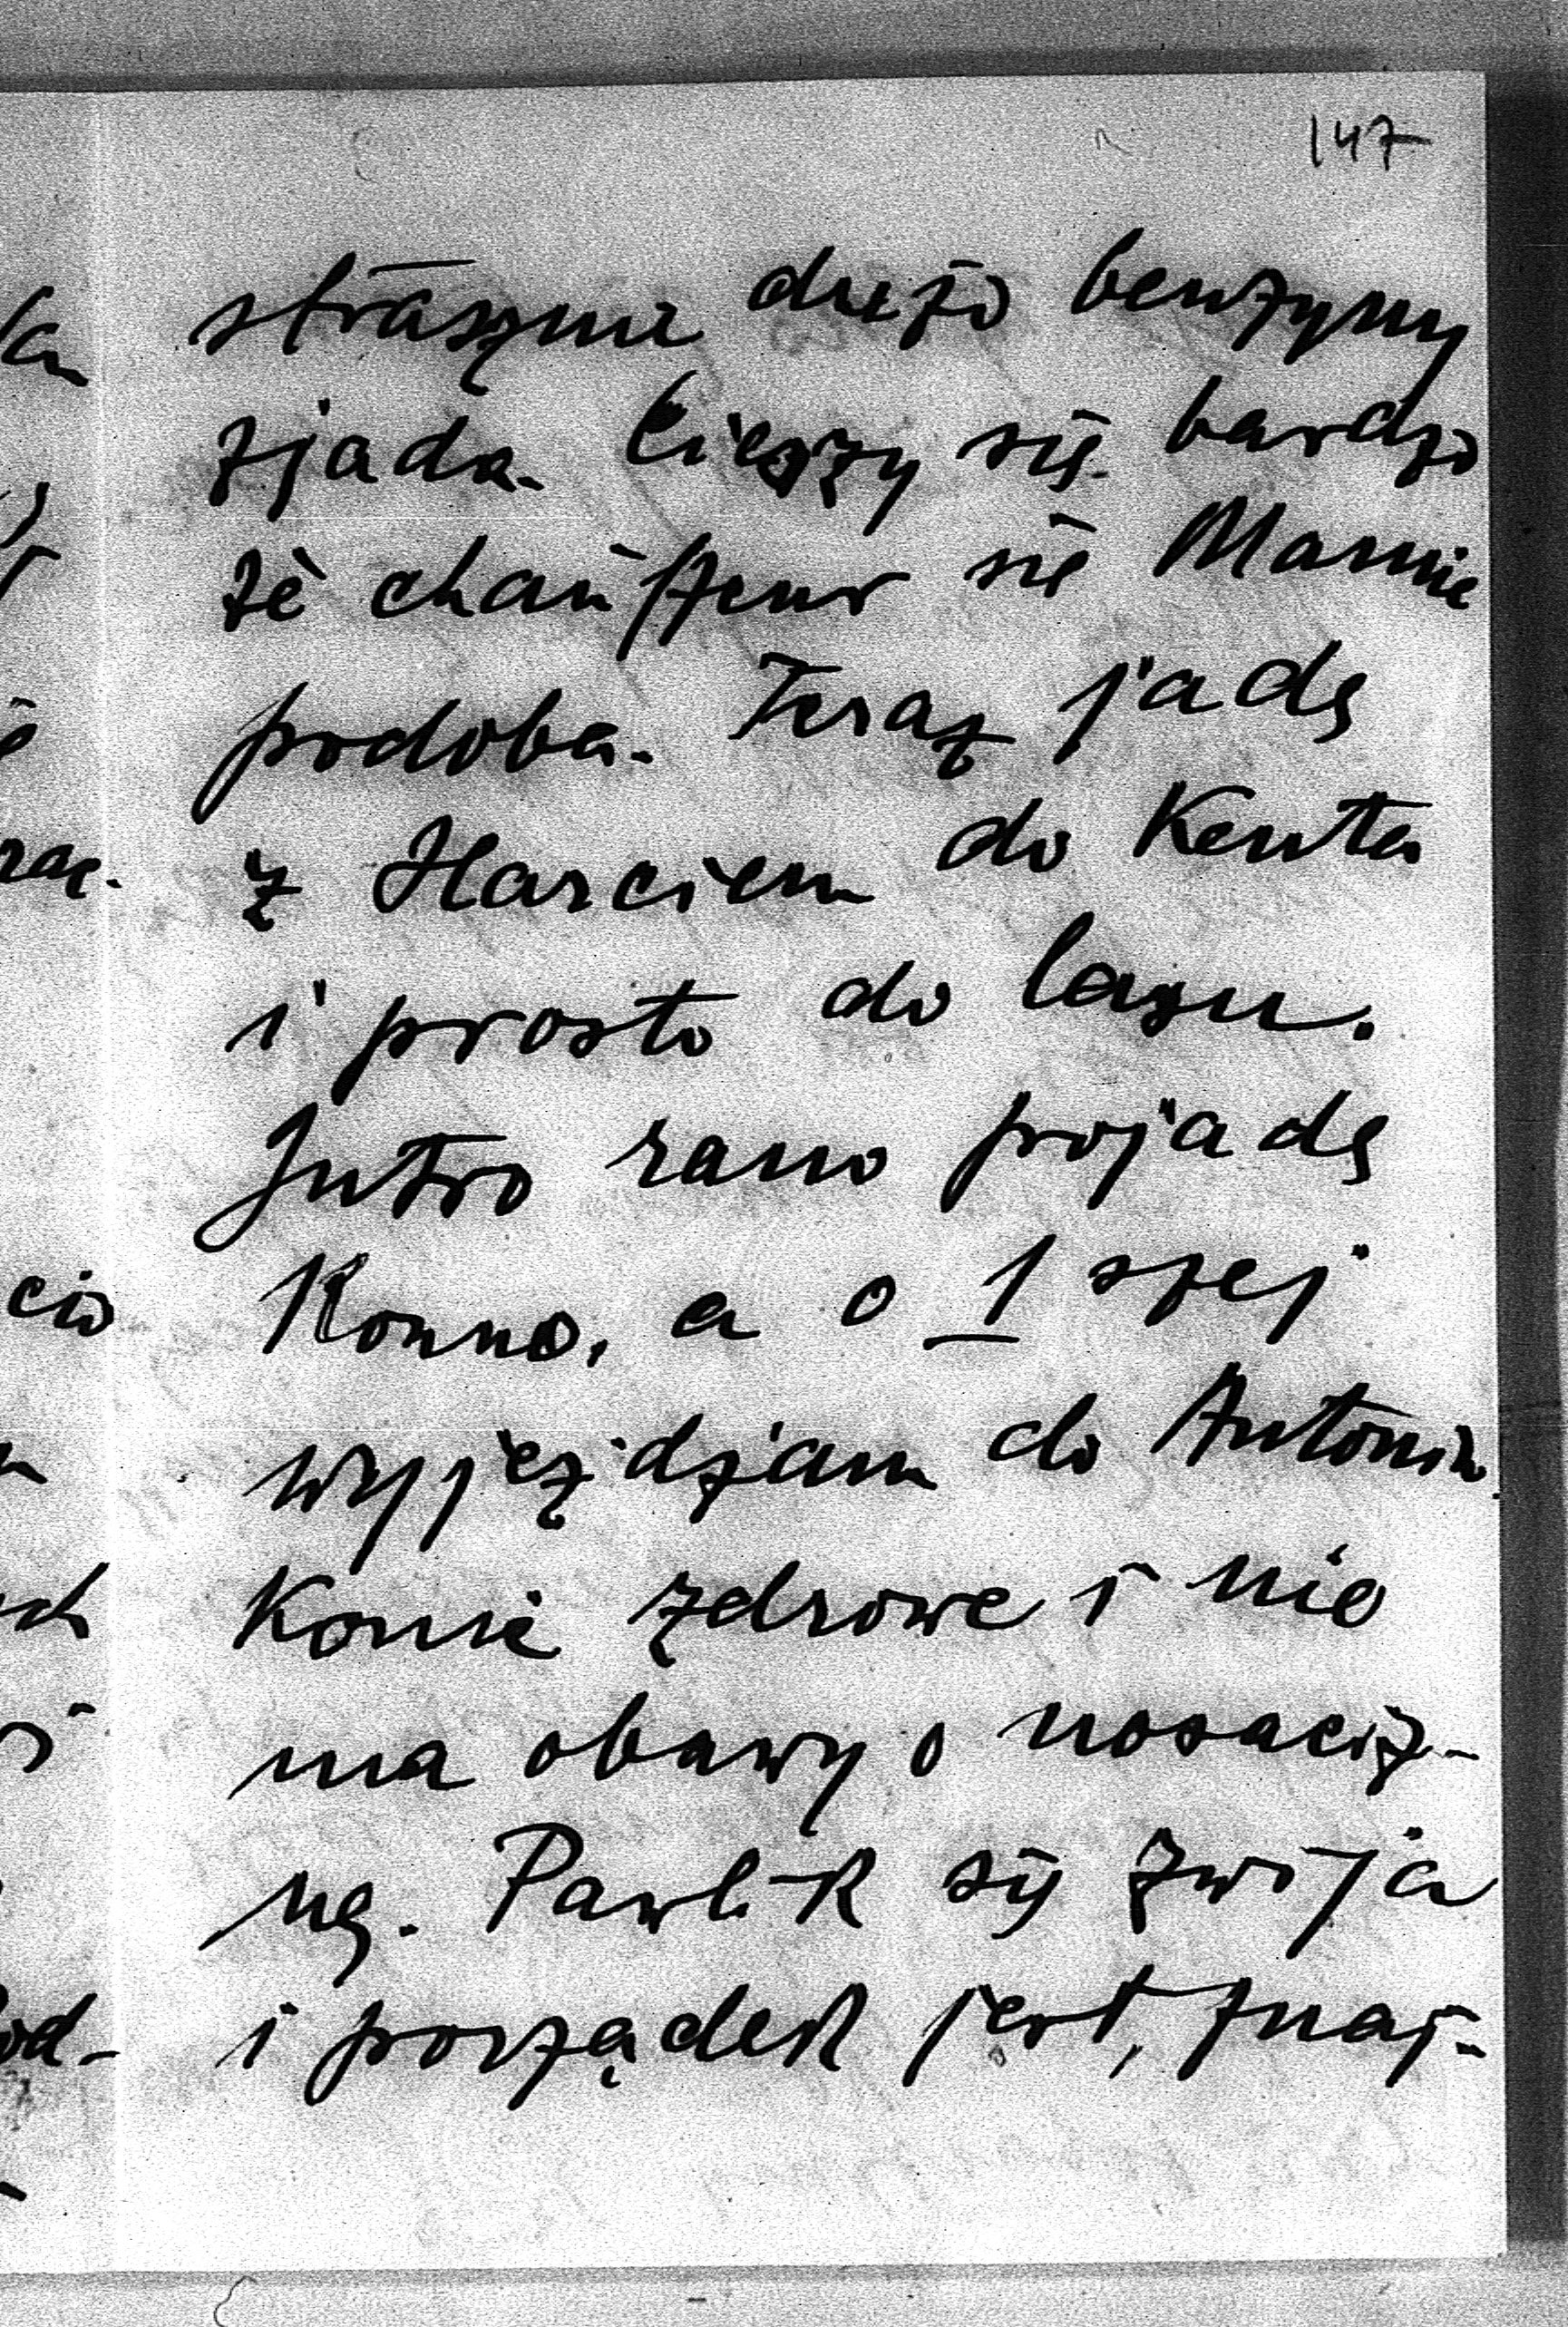 147
strasznie dużo benzyny
zjada. Cieszy się bardzo
że chauffeur się Mamie
podoba. Teraz jadę
z Harciem do Kenta
i prosto do lasu.
Jutro rano pojadę
Konno, a o 1 szej
wyjeżdżam do Antonin.
Konie zdrowe i nie
ma obawy o nosaciz-
nę. Pawlik się zwija
i porządek jest, znaj-